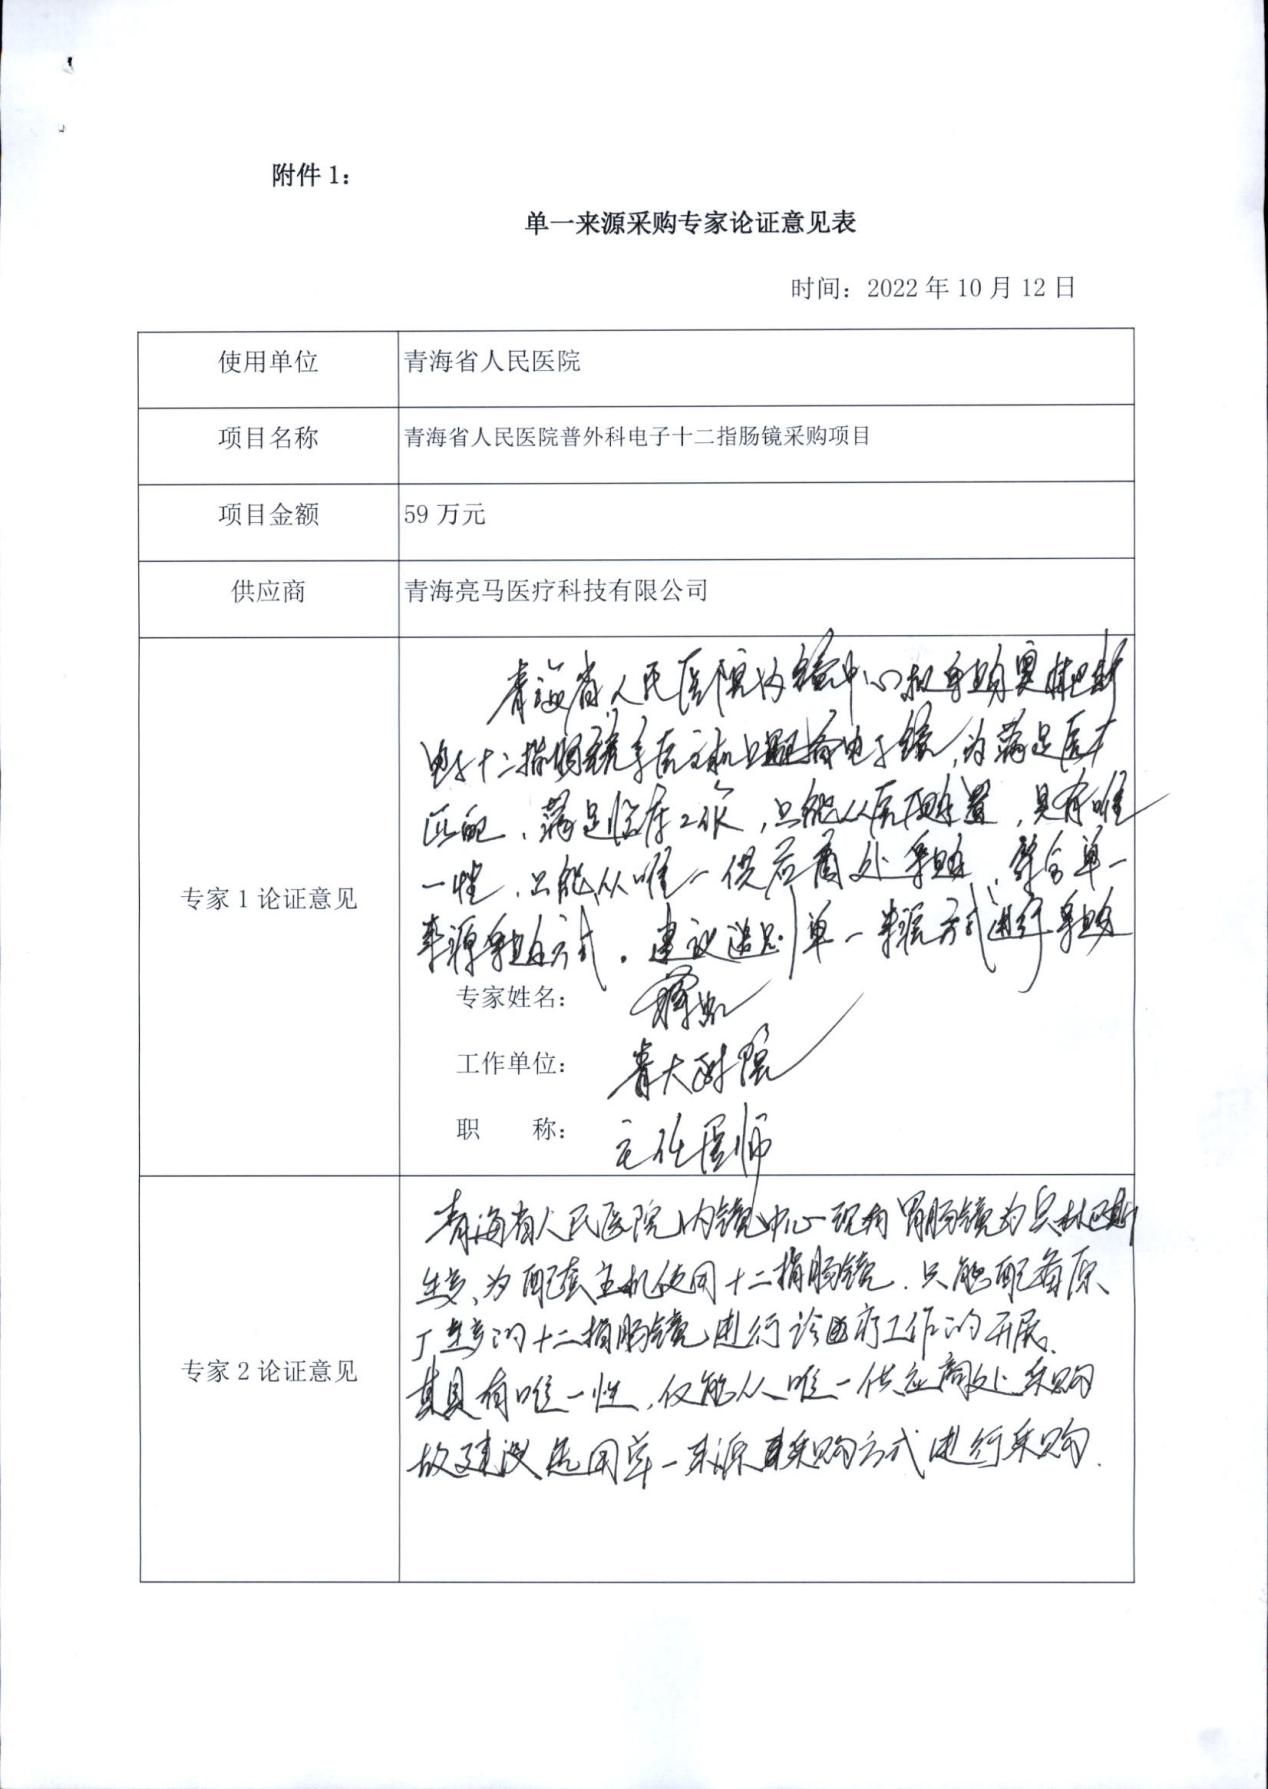 附件1:
单一来源采购专家论证意见表
时间：2022年10月12日
使用单位
青海省人民医院
项目名称
青海省人民医院普外科电子十二指肠镜采购项目
项目金额
59万元
供应商
青海亮马医疗科技有限公司
专家1论证意见
青海省人民医院内镜中心拟采购奥林巴斯
电子十二指肠镜 主机 电子镜，为满足
匹配，满足临床工作，只能从原 ，具有唯
一性，只能从唯一供应商处采购，符合单一
来源采购方式。建议 单一来源方式进行采购
专家姓名：
工作单位：
青大附院
职 称：
主任医师
专家2论证意见
青海省人民医院内镜中心现有胃肠镜为奥林巴斯
生产，为配套主机使用十二指肠镜，只能配备原
厂生产的十二指肠镜进行诊疗工作的开展。
其具有唯一性，仅能从唯一供应商处采购
故建议选用单一来源采购方式进行采购.